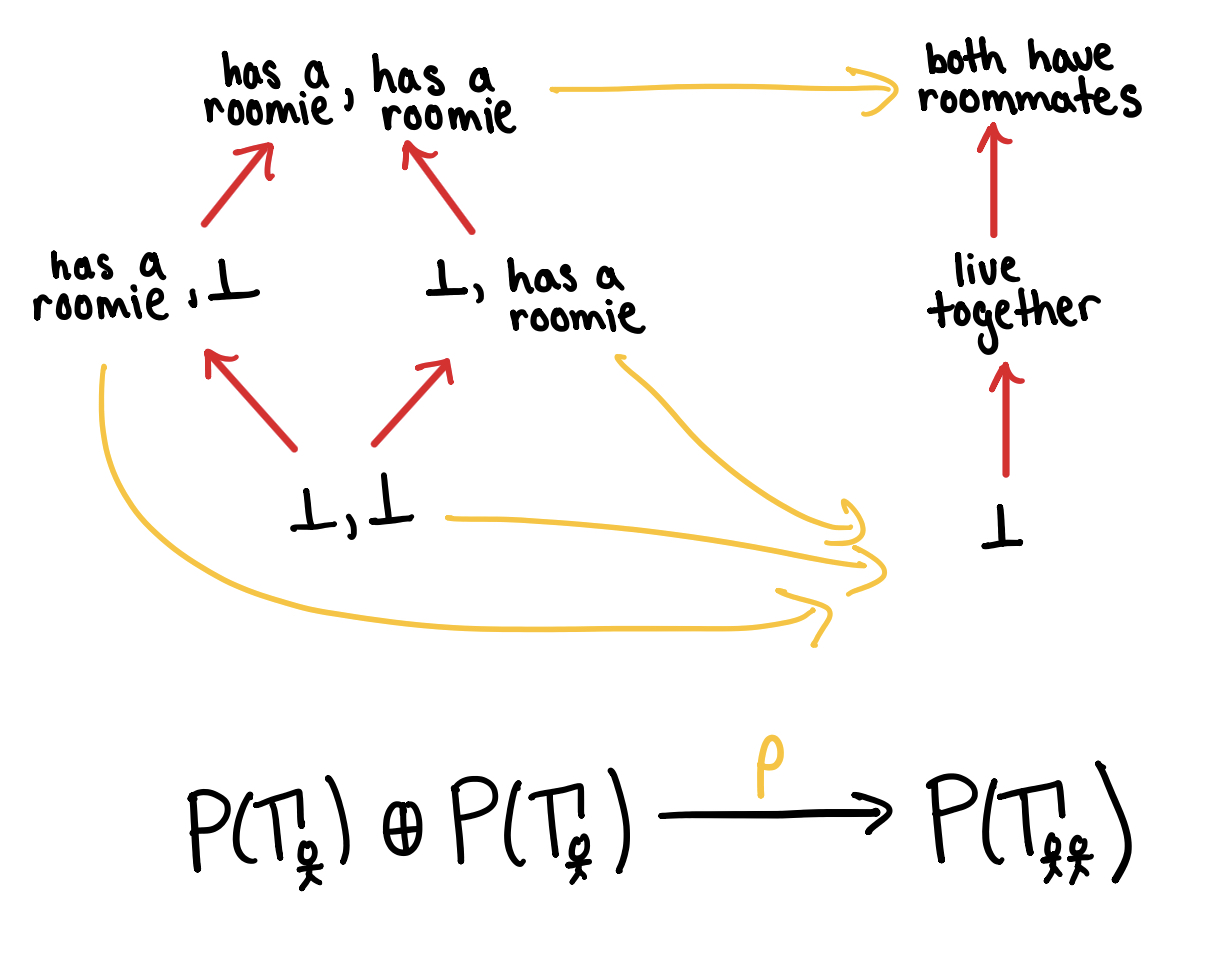 has a roomie, has a roomie
both have roommates
has a roomie, ⊥
⊥, has a roomie
live together
⊥, ⊥
⊥
ρ
P(T) ⊕ P(T) → P(T)